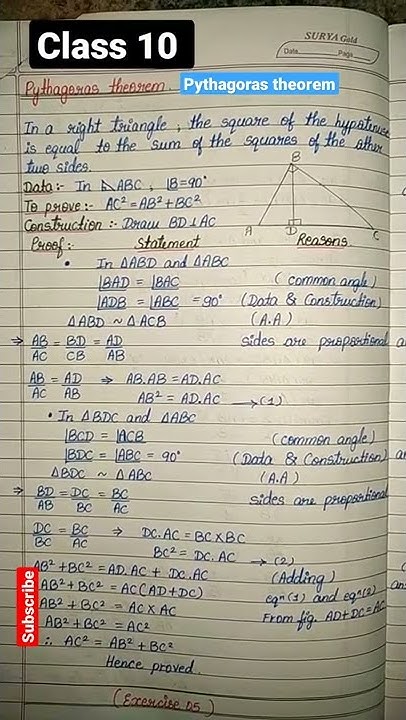 Class 10
SURYA Gold
Date Page
Pythagoras theorem. Pythagoras theorem
In a right triangle, the square of the hypotenuse
is equal to the sum of the squares of the other
two sides.
B
Data:- In △ABC, ∠B=90°
To prove:- AC² = AB² + BC²
Construction:- Draw BD ⊥ AC
A D C
Proof:- Statement Reasons.
• In ΔABD and ΔABC
∠BAD = ∠BAC (common angle)
∠ADB = ∠ABC = 90° (Data & Construction)
ΔABD ~ ΔACB (A.A)
⇒ AB/AC = BD/CB = AD/AB sides are proportional
AB/AC = AD/AB ⇒ AB.AB = AD.AC
AB² = AD.AC →(1)
• In ΔBDC and ΔABC
∠BCD = ∠ACB (common angle)
∠BDC = ∠ABC = 90° (Data & Construction)
ΔBDC ~ ΔABC (A.A)
⇒ BD/AB = DC/BC = BC/AC sides are proportional
DC/BC = BC/AC ⇒ DC.AC = BC×BC
BC² = DC.AC →(2)
AB² + BC² = AD.AC + DC.AC (Adding)
AB² + BC² = AC(AD+DC) eqⁿ(1) and eqⁿ(2)
AB² + BC² = AC×AC From fig. AD+DC=AC
AB² + BC² = AC²
∴ AC² = AB² + BC²
Hence proved.
(Exercise 05)
Subscribe